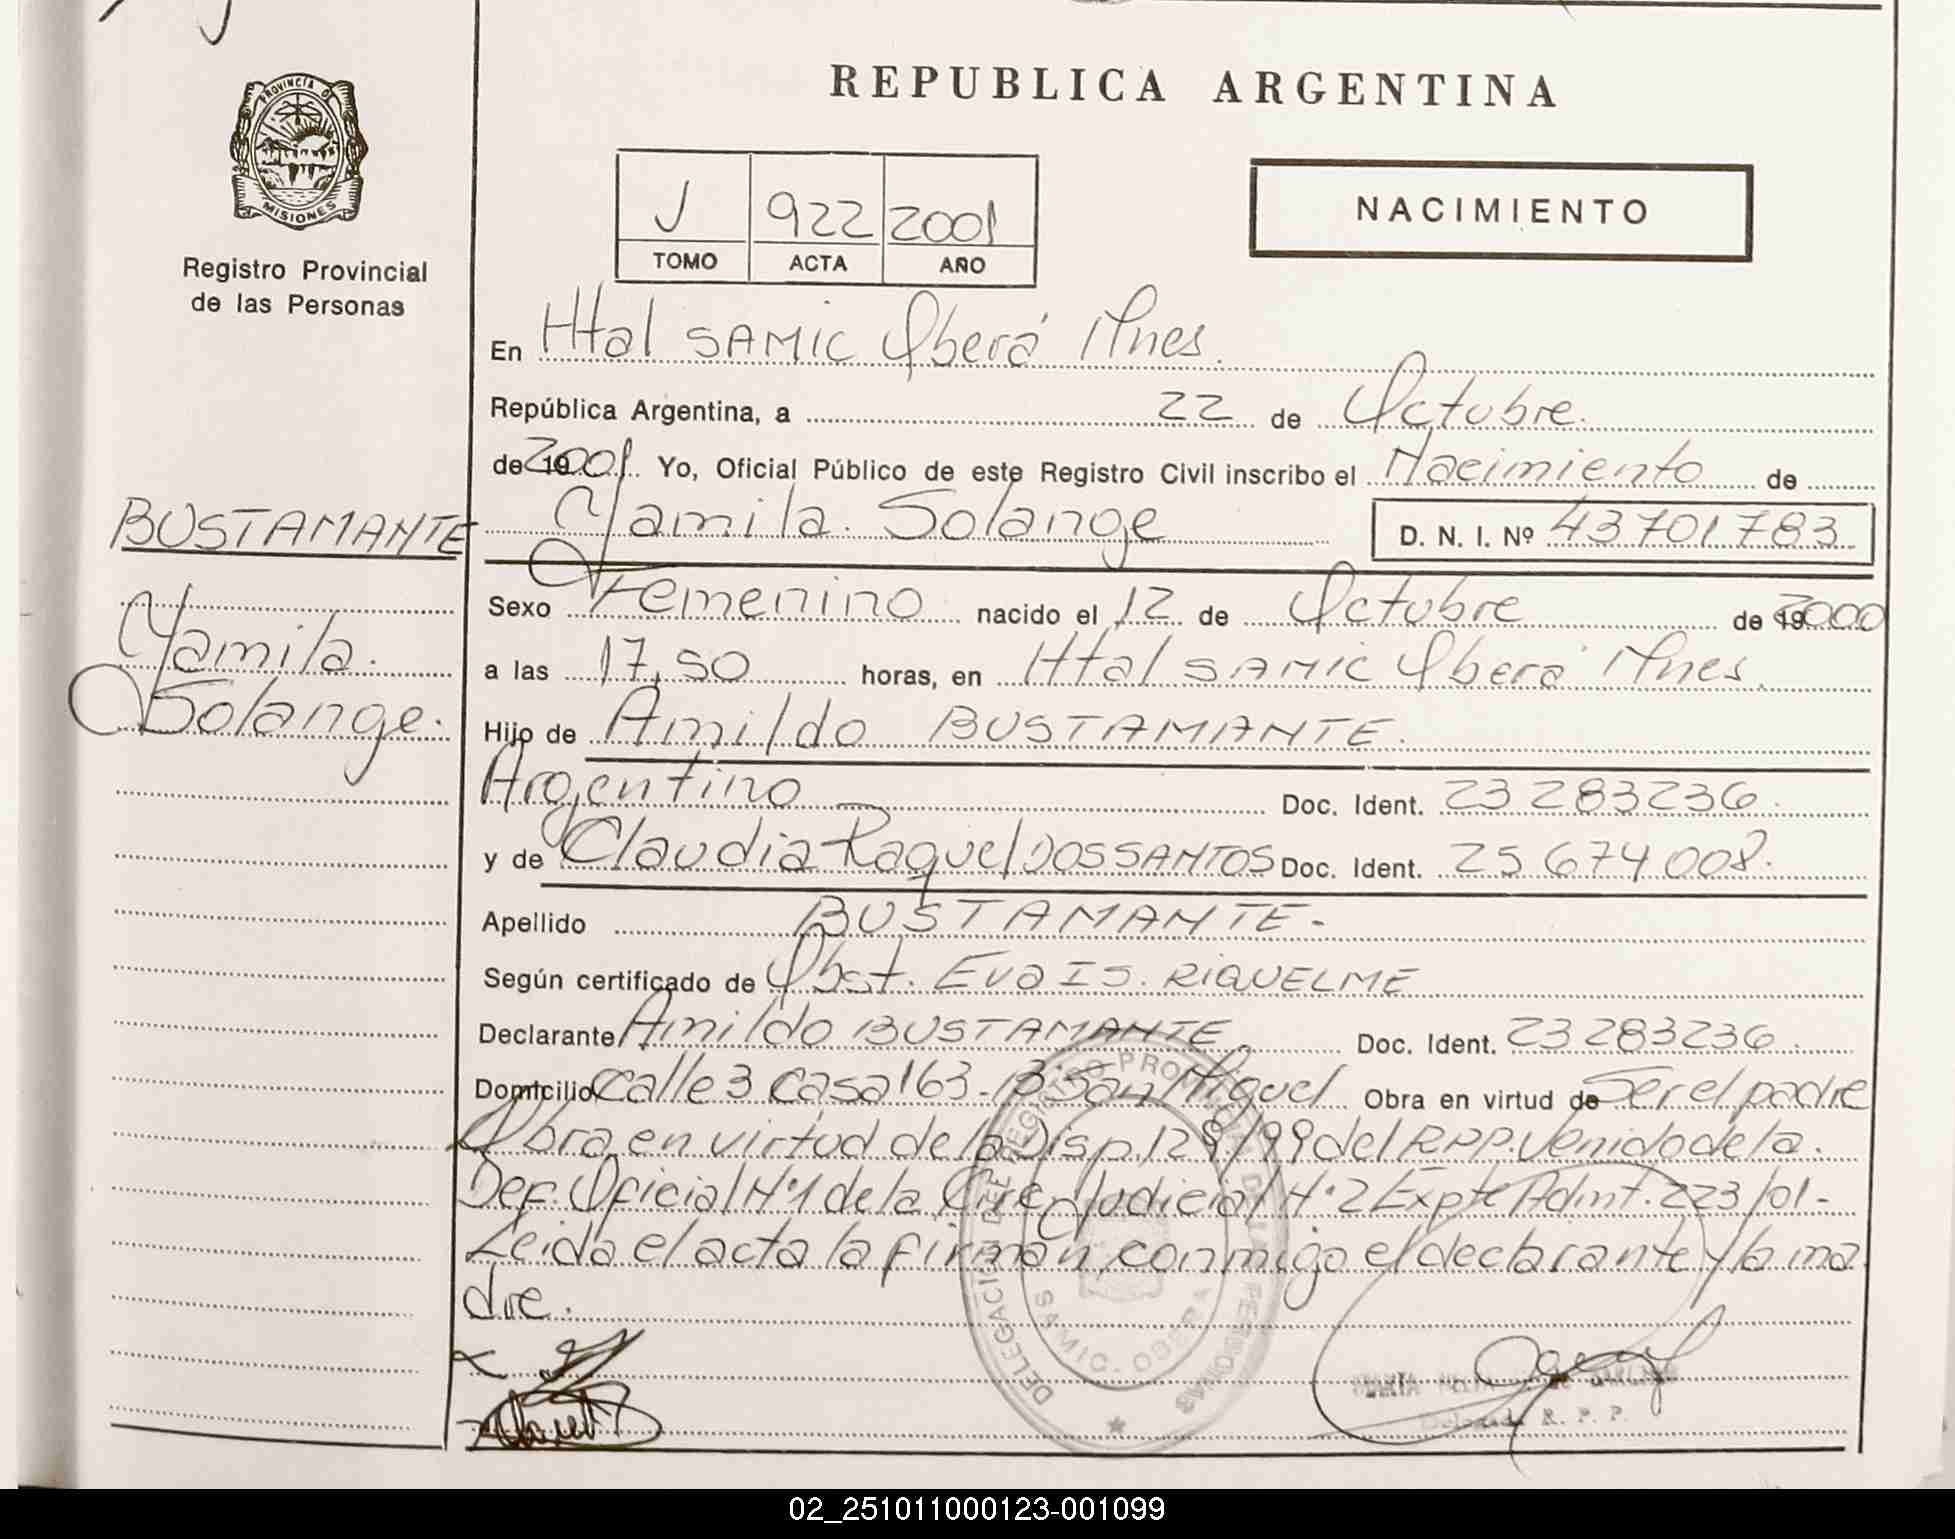 PROVINCIA DE
MISIONES
Registro Provincial
de las Personas
BUSTAMANTE
Yamila.
Solange.
REPUBLICA ARGENTINA
J 922 2001
TOMO ACTA AÑO
NACIMIENTO
En Htal SAMIC Oberá Mnes.
República Argentina, a 22 de Octubre.
de 2001. Yo, Oficial Público de este Registro Civil inscribo el Nacimiento de
Yamila. Solange D. N. I. Nº 43701783
Sexo Femenino nacido el 12 de Octubre de 2000
a las 17,50 horas, en Htal SAMIC Oberá Mnes.
Hijo de Amildo BUSTAMANTE.
Argentino Doc. Ident. 23 283236.
y de Claudia Raquel DOS SANTOS Doc. Ident. 25 674 008.
Apellido BUSTAMANTE.-
Según certificado de Obst. Eva IS. RIQUELME
Declarante Amildo BUSTAMANTE Doc. Ident. 23 283236
Domicilio Calle 3 Casa 163- B° San Miguel Obra en virtud de Ser el padre
Obra en virtud de la Disp. 129/99 del RPP. Venido de la
Def. Oficial Nº1 de la Circ Judicial Nº2 Expte Admt. 223/01-
Leida el acta la firman conmigo el declarante y la ma
dre.
DELEGACION DEL REGISTRO PROVINCIAL DE LAS PERSONAS
SAMIC. OBERA
MARTA
Delegada R. P. P.
02_251011000123-001099